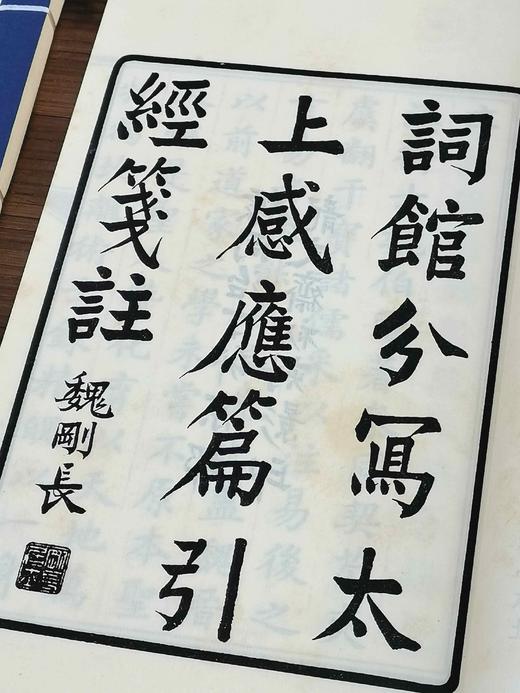 詞館分寫太
上感應篇引
經箋註
魏剛長